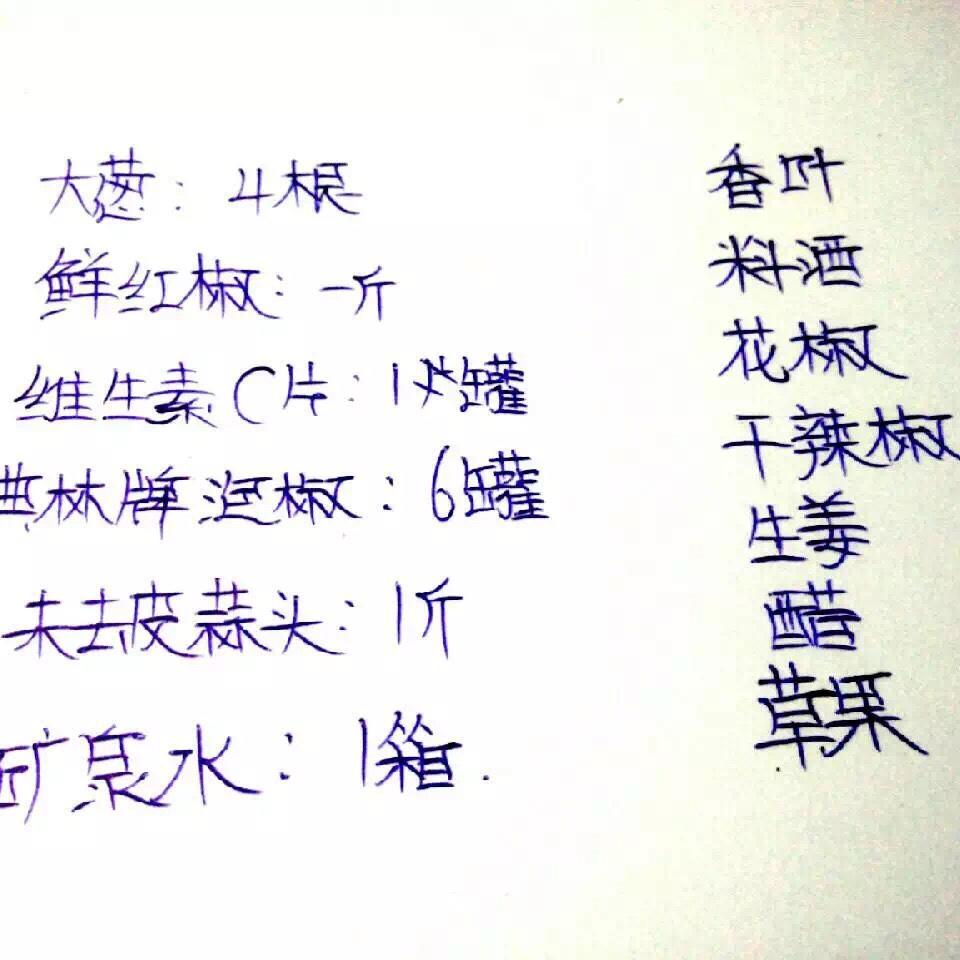 大葱：4根
鲜红椒：一斤
维生素C片：1罐
典林牌泡椒：6罐
未去皮蒜头：1斤
矿泉水：1箱.
香叶
料酒
花椒
干辣椒
生姜
醋
草果